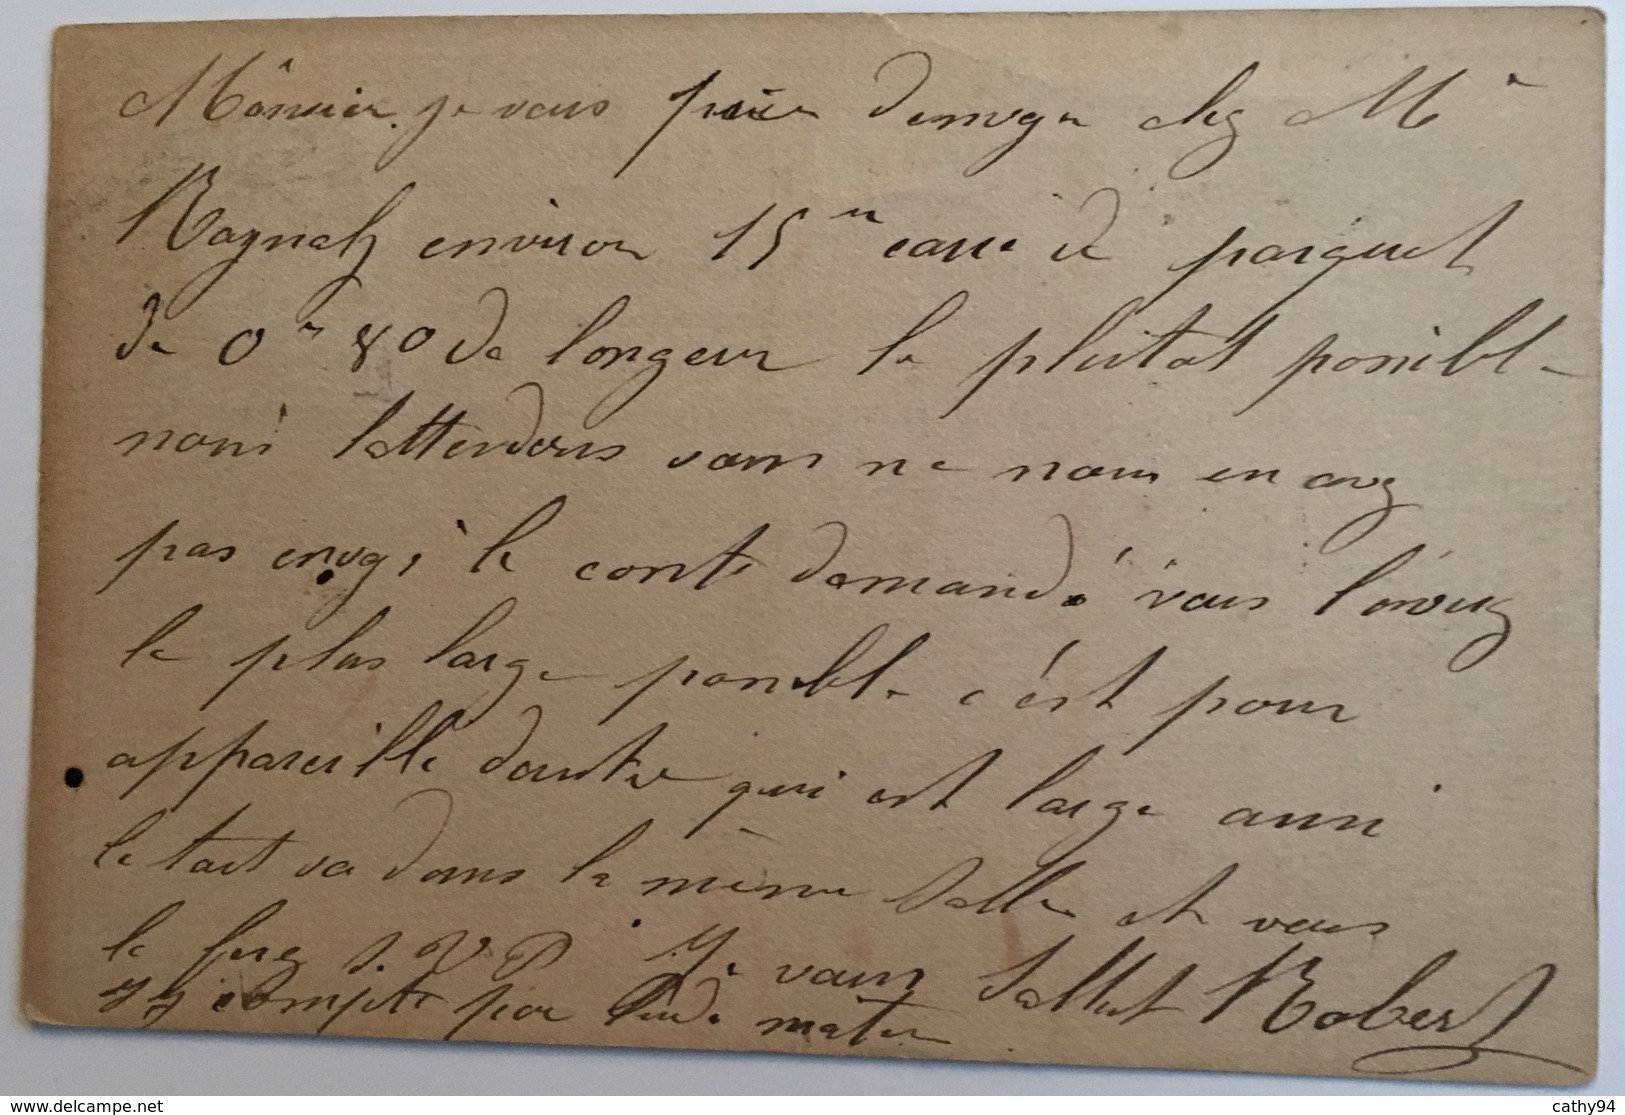 Mònsieur. je vous prie denvoyer chez Mr
Ragneltz environ 15 m carré de parquet
de 0m 80 de longeur le plutot possible
nous lattendons vous ne nous en avez
pas envoyé le conte demandé vous l'onvez
le plus large possible c'est pour
appareille dautre qui est large aussi
le tout va dans la même salle et vous
le ferez S.V.P Je vous sallut Robert
jy compte por lindi matin
www.delcampe.net
cathy94